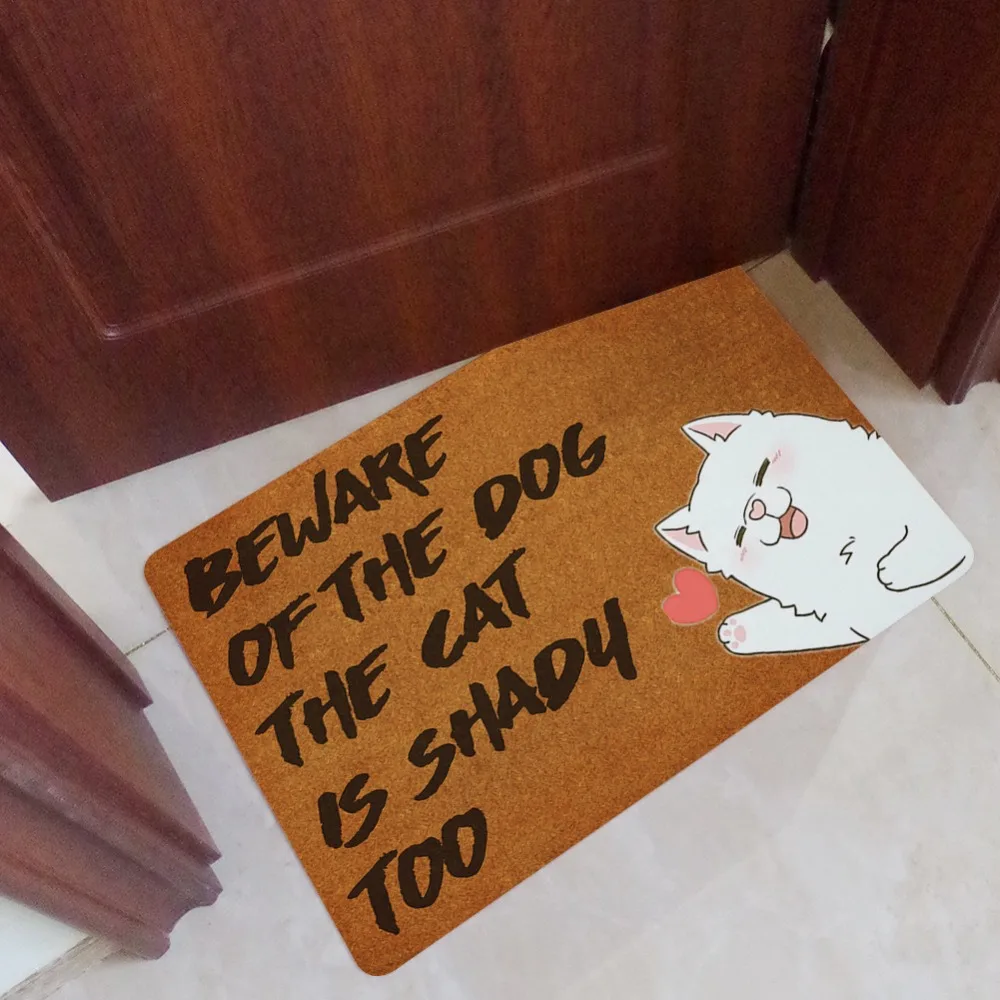 BEWARE
OF THE DOG
THE CAT
IS SHADY
TOO